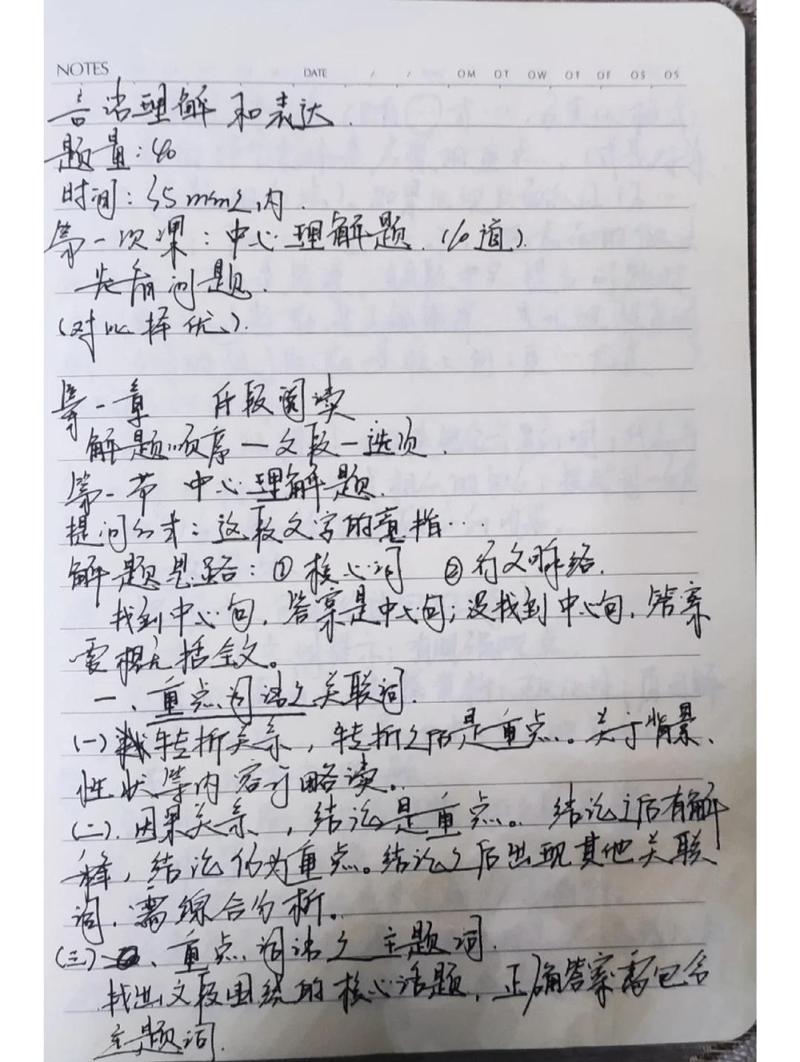 NOTES DATE / / OM OT OW OT OF OS OS
言语理解和表达.
题量:40
时间:35min之内.
第一次课:中心理解题(10道).
先看问题.
(对比择优).
第一章 片段阅读
解题顺序—文段—选项.
第一节 中心理解题.
提问方式:这段文字的意指…
解题思路:①核心词 ②行文脉络.
找到中心句,答案是中心句;没找到中心句,答案
要概括全文。
一、重点词语之关联词.
(一)转折关系,转折之后是重点。关于背景、
性状等内容可略读.
(二).因果关系,结论是重点。结论之后有解
释,结论仍为重点。结论之后出现其他关联
词,需综合分析。
(三)、重点词语之主题词.
找出文段围绕的核心话题,正确答案需包含
主题词.